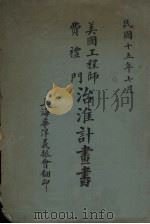 民國十五年七月
美國工程師
費禮門
治淮計畫書
上海華洋義振會翻印